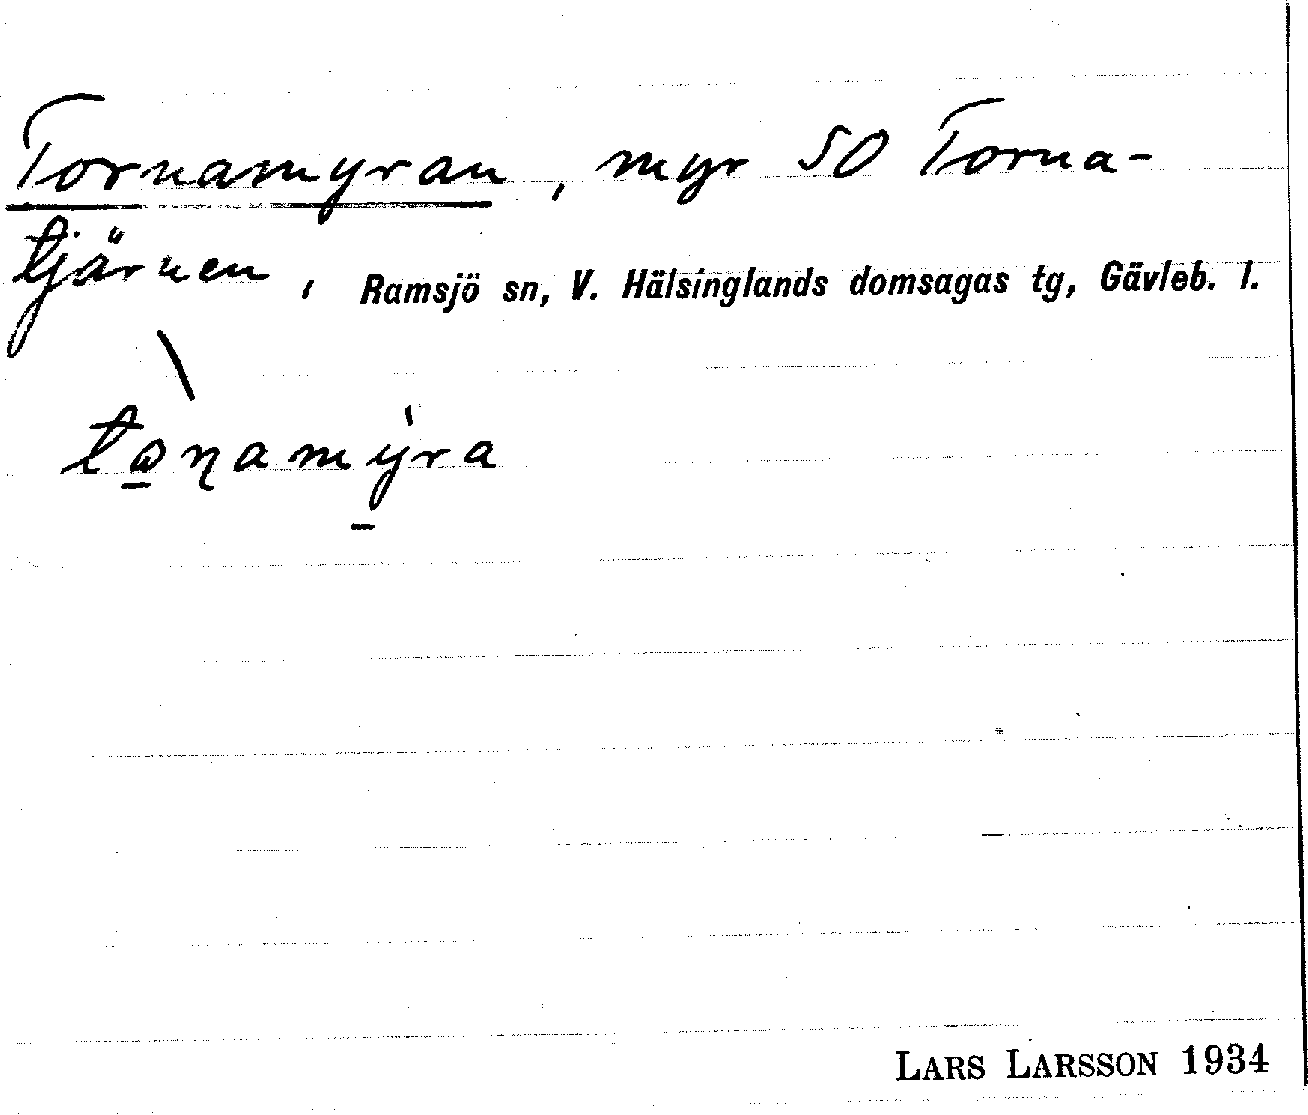 Tornamyran, myr SO Torna-
tjärnen, Ramsjö sn, V. Hälsinglands domsagas tg, Gävleb. l.
LARS LARSSON 1934